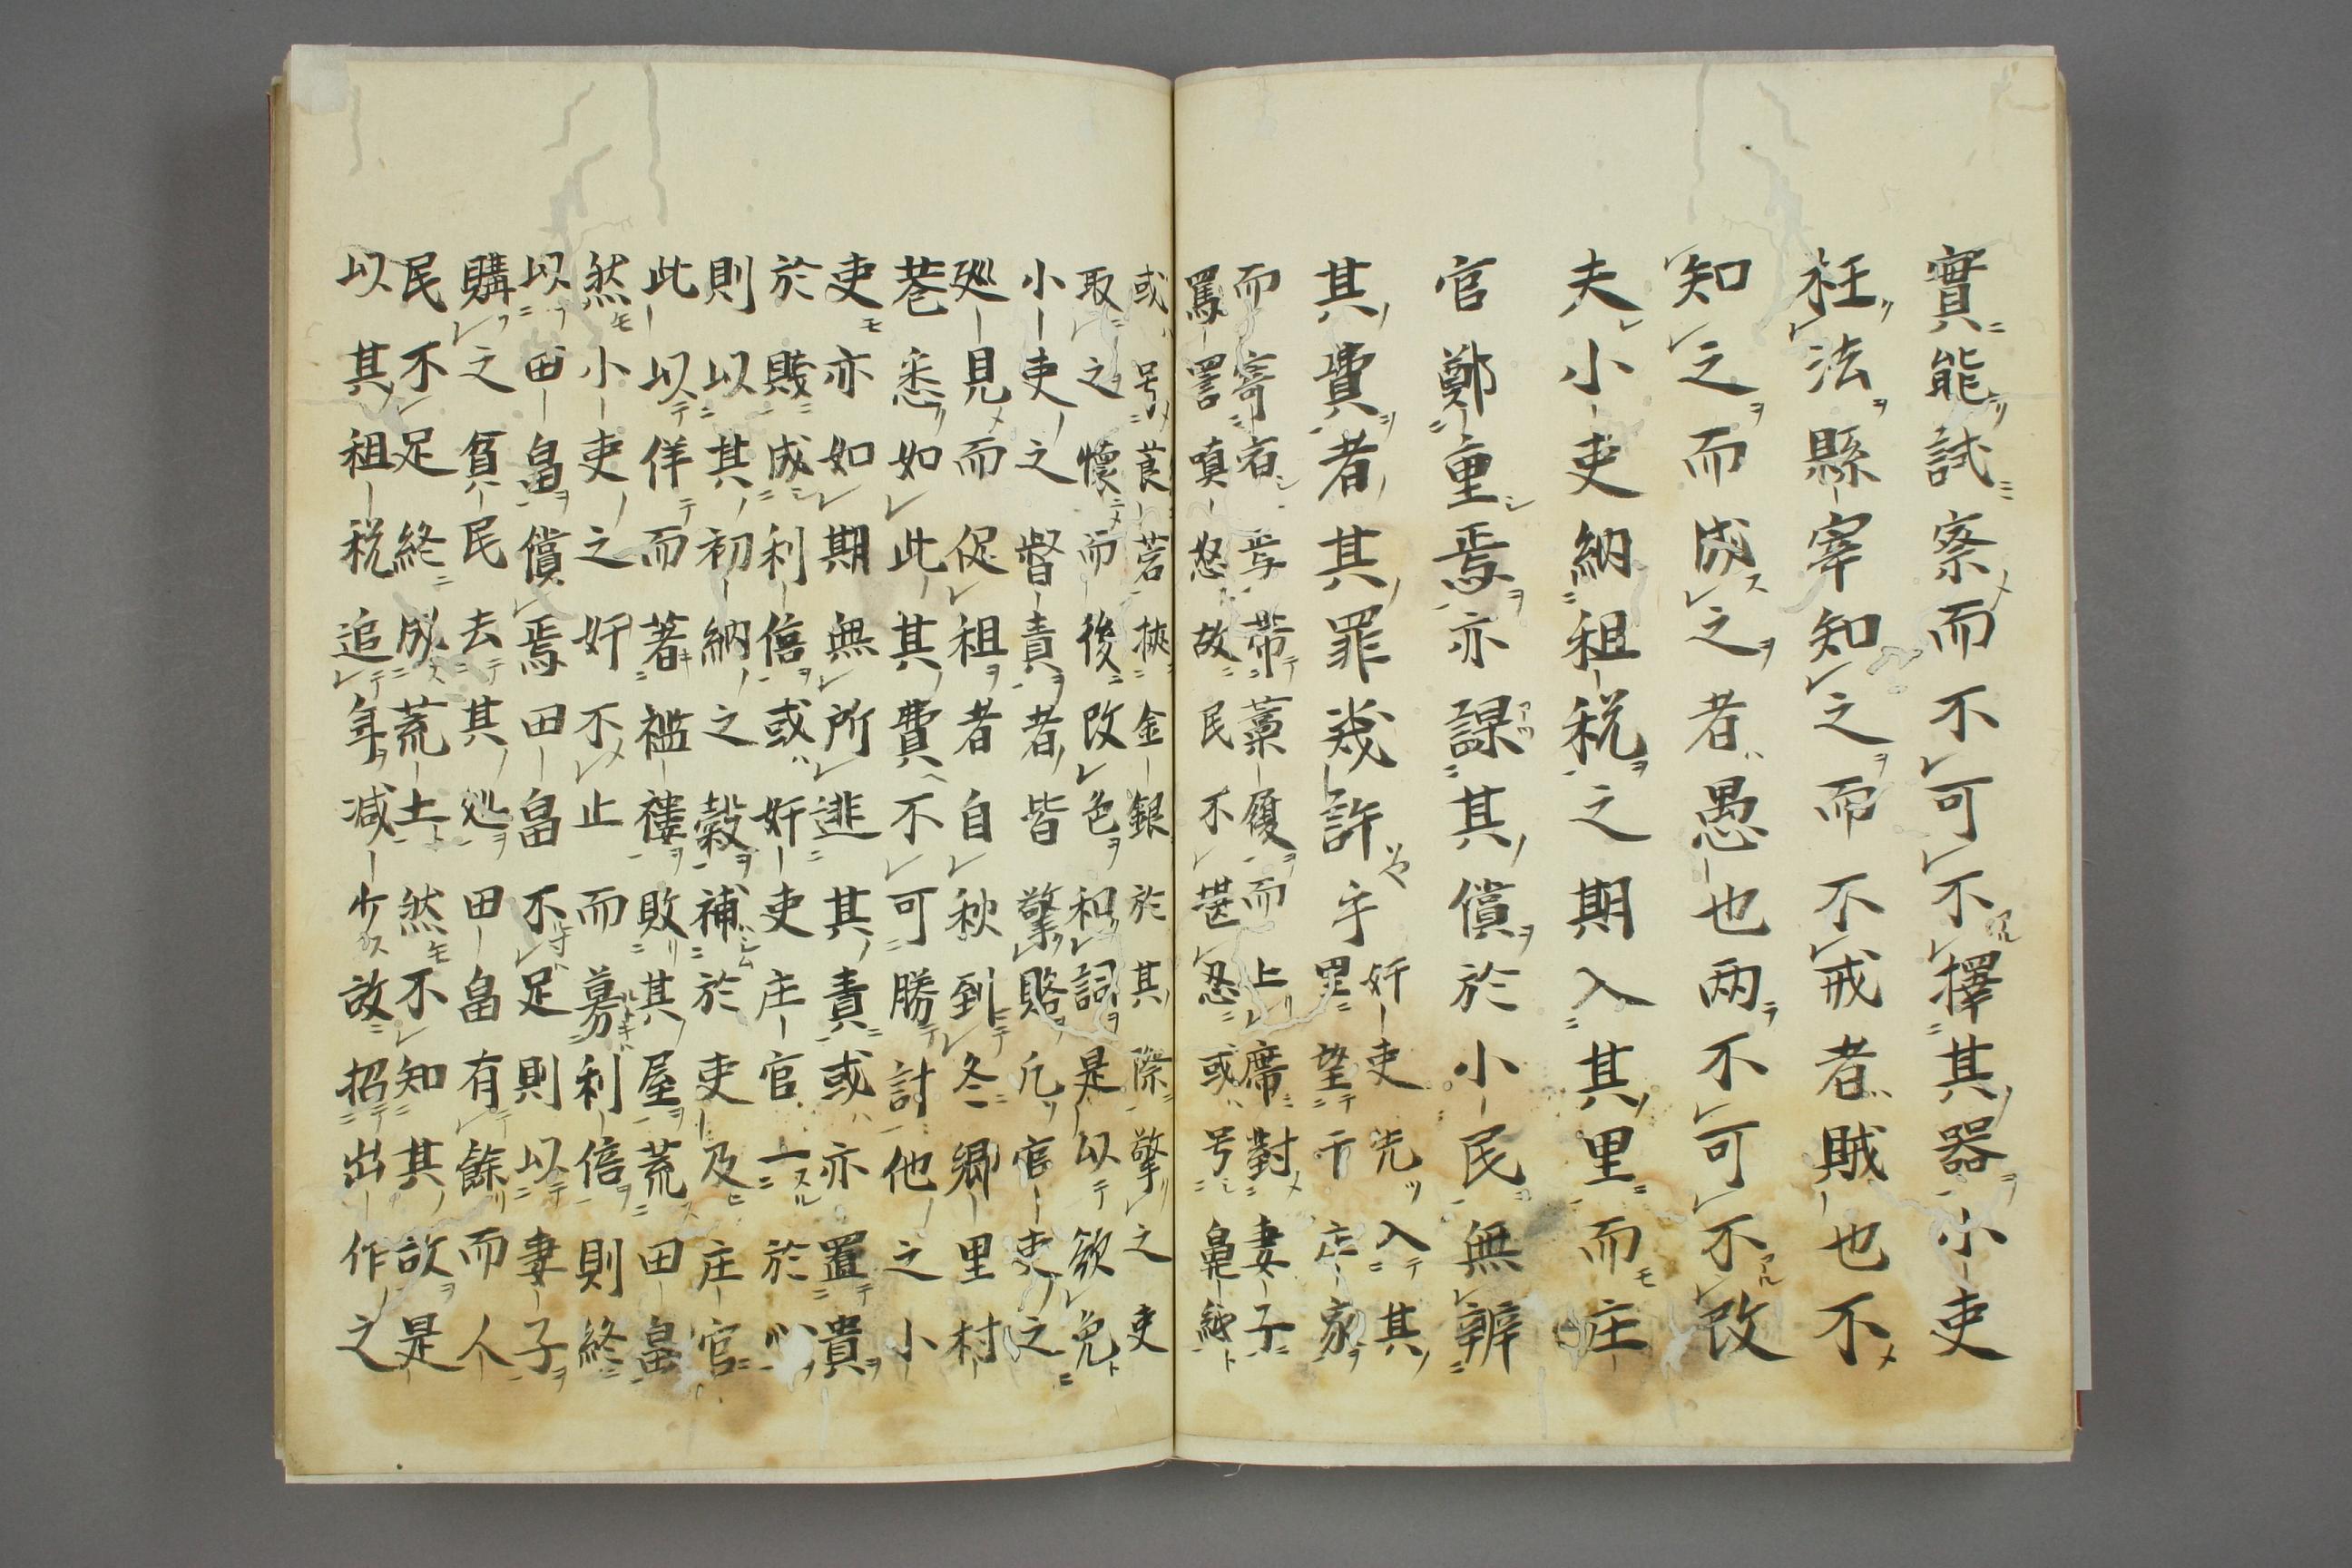 實能試察而不可不擇其器小吏
枉法縣宰知之而不戒者賊也不
知之而成之者愚也两不可不改
夫小吏納租税之期入其里而庄
官鄭重焉亦課其償於小民無辨
其費者其罪幾許乎
奸吏先入其
里望于庄家
而寄宿焉帯藁履而上席對妻子
罵詈嗔怒故民不堪忍或号皐緬
或号莨菪挾金銀於其際擎之吏
取之懐而後改色和詞是以欲免
小吏之督責者皆擎賂凡官吏之
廵見而促租者自秋到冬郷里村
巷悉如此其費不可勝計他之小
吏亦如期無所逃其責或亦置貴
於賤成利倍或奸吏庄官一於心
則以其初納之穀補於吏及庄官
此以佯而著襤褸敗其屋荒田畠
然小吏之奸不止而募利倍則終
以田畠償焉田畠不足則以妻子
購之貧民去其処田畠有餘而人
民不足終成荒土然不知其故是
以其租税追年减少故招出作之